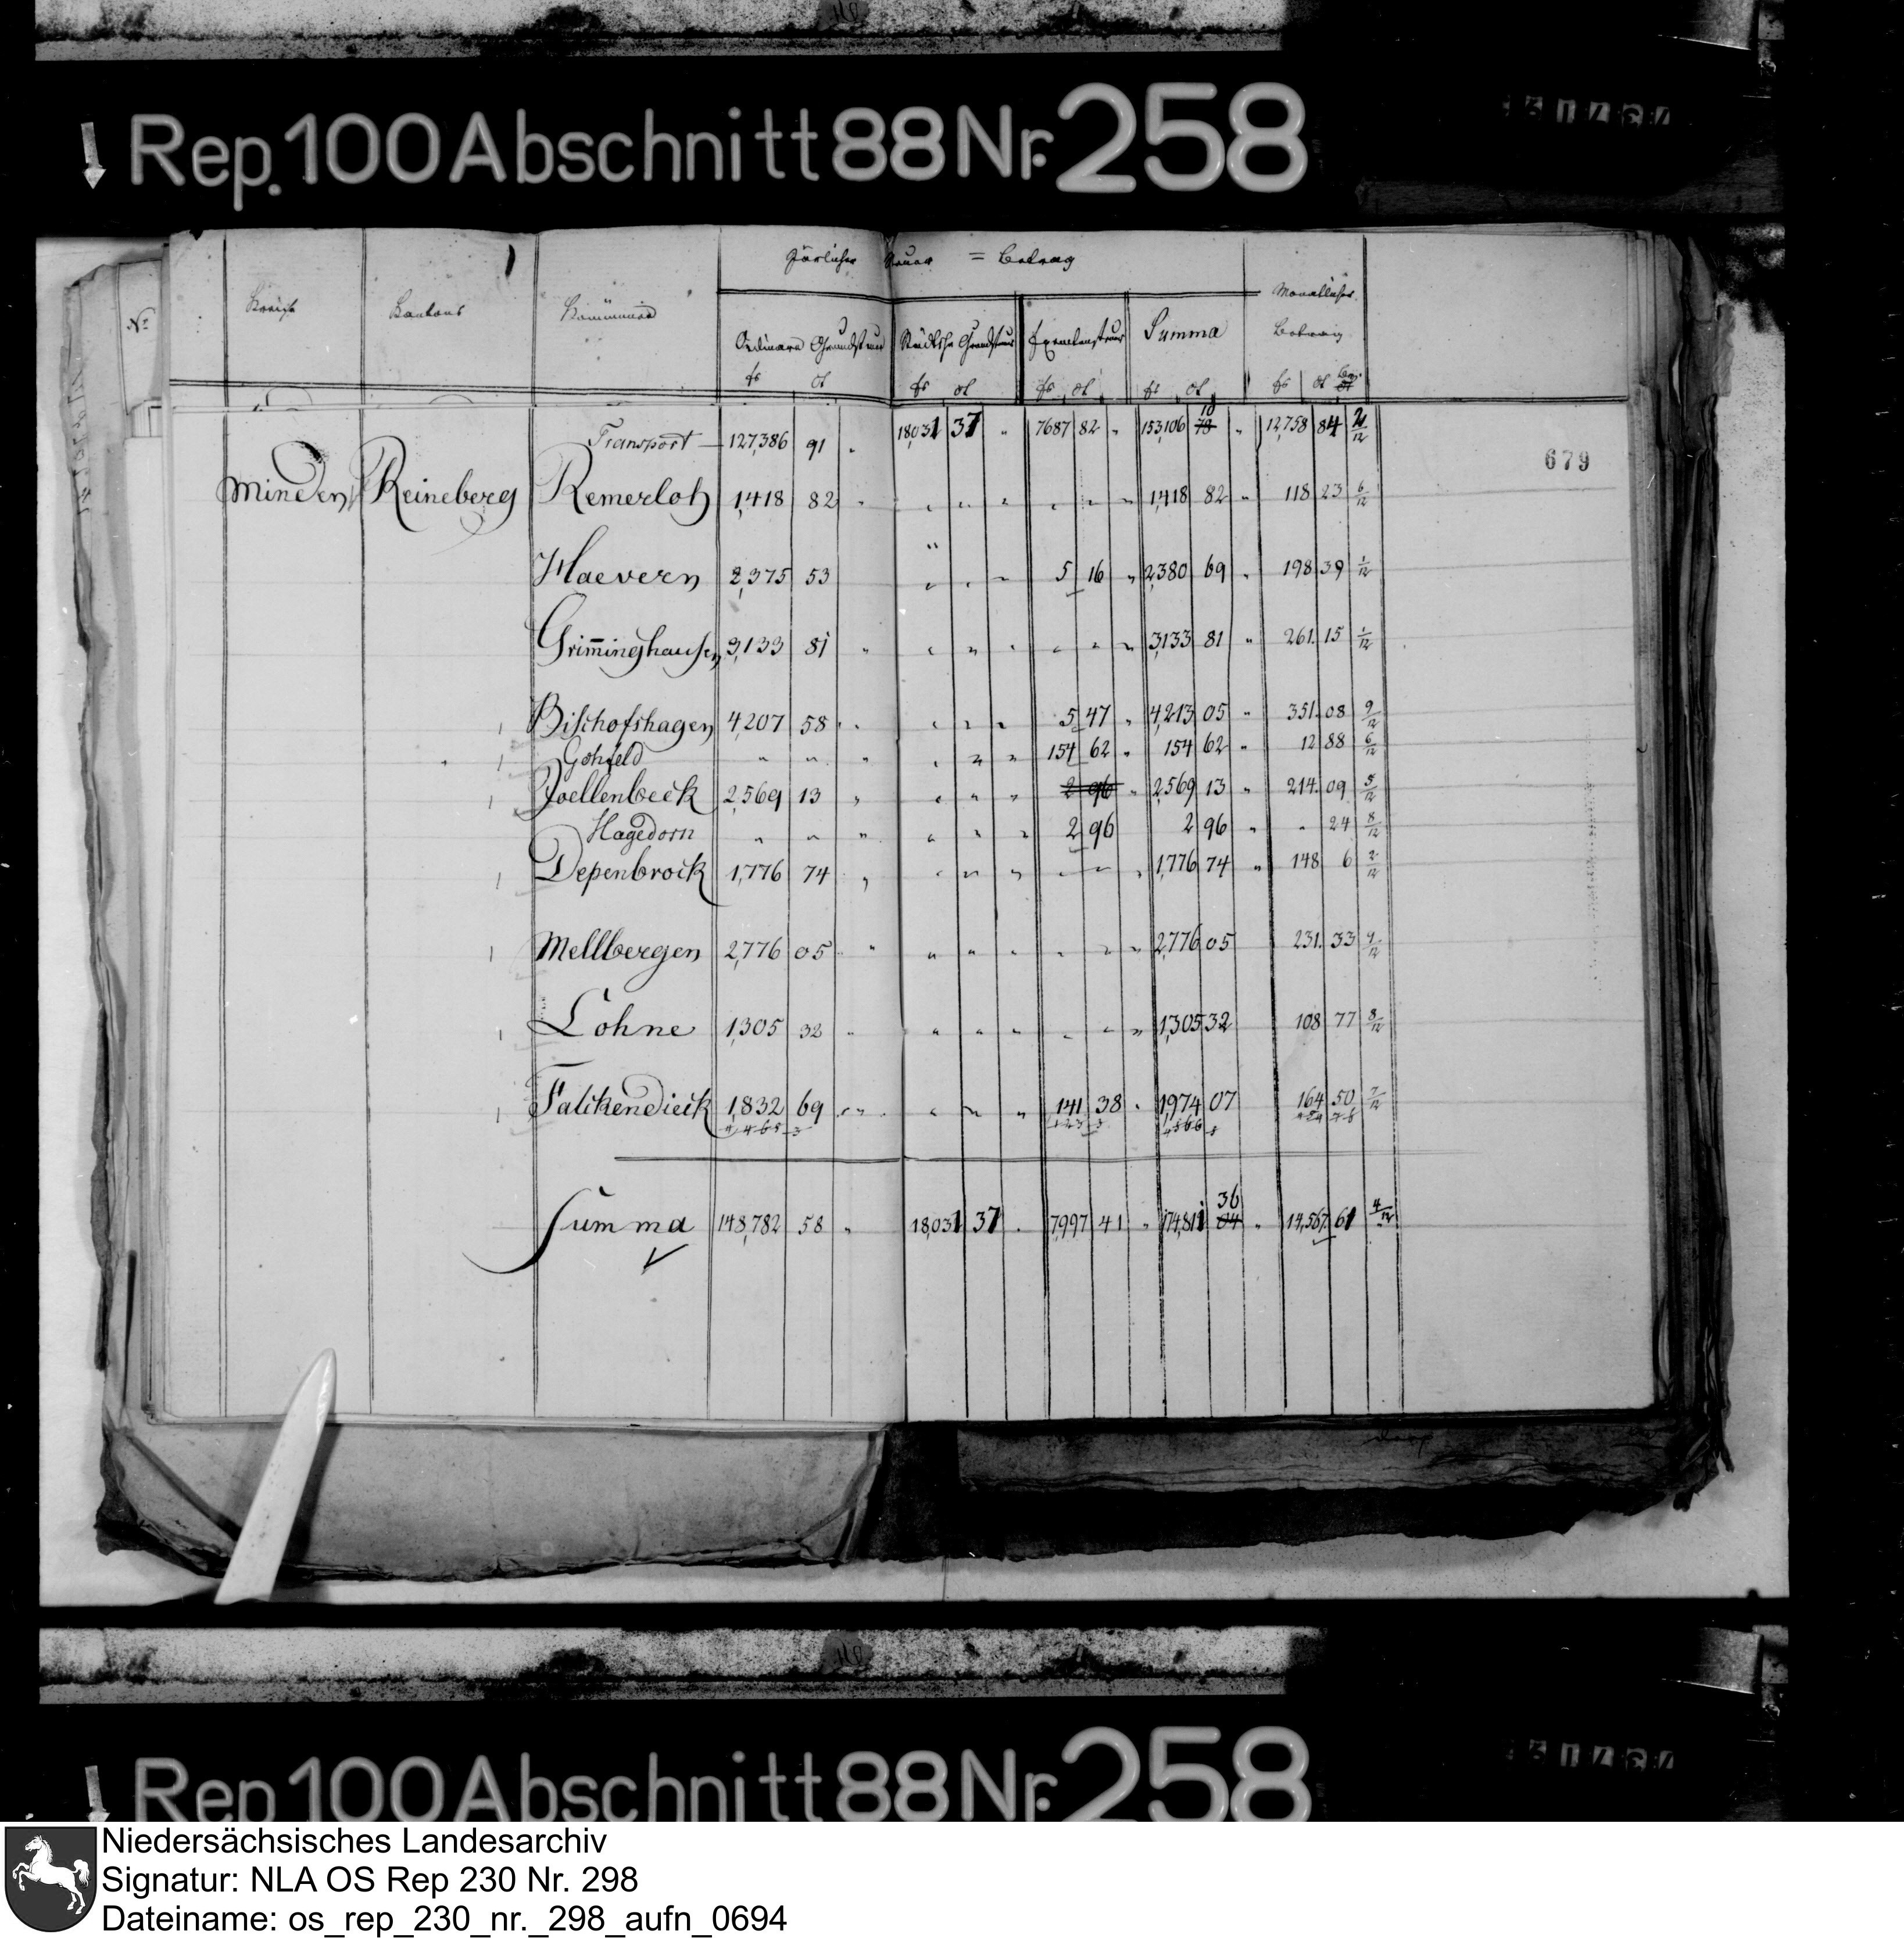 Rep. 100 Abschnitt 88 Nr. 258
Järlicher Steuer = Betrag
Monatlicher
Betrag
No Kreise Kantons Kommunen
Ordinaire Grundsteuer Städtsche Grundsteuer Exemtensteuer Summa
fs ct fs ct fs ct fs ct fs ct
Transport 127,386 91 " 18,031 37 " 7687 82 " 153,106 78 10 " 12,758 84 2/12
679
Minden Reineberg Remerloh 1,418 82 " " " " " " " 1,418 82 " 118 23 6/12
Haevern 2,375 53 " " " 5 16 " 2,380 69 " 198 39 1/12
Grim̅inghausen 3,133 81 " " " " " " " 3,133 81 " 261. 15 1/12
Bischofshagen 4,207 58 " " " " 5 47 " 4,213 05 " 351. 08 9/12
Gohfeld " " " " " " 154 62 " 154 62 " 12 88 6/12
Joellenbeck 2,569 13 " " " " 2 96 " 2,569 13 " 214. 09 5/12
Hagedorn " " " " " " 2 96 2 96 " " 24 8/12
Depenbrock 1,776 74 " " " " " " " 1,776 74 " 148 6 2/12
Mellbergen 2,776 05 " " " " " " " 2,776 05 231. 33 9/12
Löhne 1,305 32 " " " " " " " 1,305 32 108 77 8/12
Falckendieck 1,832 69 " " " " 141 38 " 1,974 07 164 50 7/12
Summa 148,782 58 " 18,031 37 " 7,997 41 " 174,811 04 36 " 14,567 61 4/12
Rep. 100 Abschnitt 88 Nr. 258
Niedersächsisches Landesarchiv
Signatur: NLA OS Rep 230 Nr. 298
Dateiname: os_rep_230_nr._298_aufn_0694